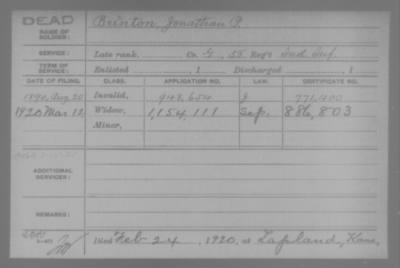 DEAD
NAME OF SOLDIER: Brinton, Jonathan P.
SERVICE: Late rank, Co. G, 58 Reg't Ind. Inf.
TERM OF SERVICE: Enlisted , 1 Discharged , 1
DATE OF FILING. CLASS. APPLICATION NO. LAW. CERTIFICATE NO.
1890, Aug 20 Invalid, 948,654 J 771,400
1920 Mar 12 Widow, 1,154,111 886,803
Minor,
ADDITIONAL SERVICES:
REMARKS:
Died Feb 24, 1920, at Lapland, Kans,